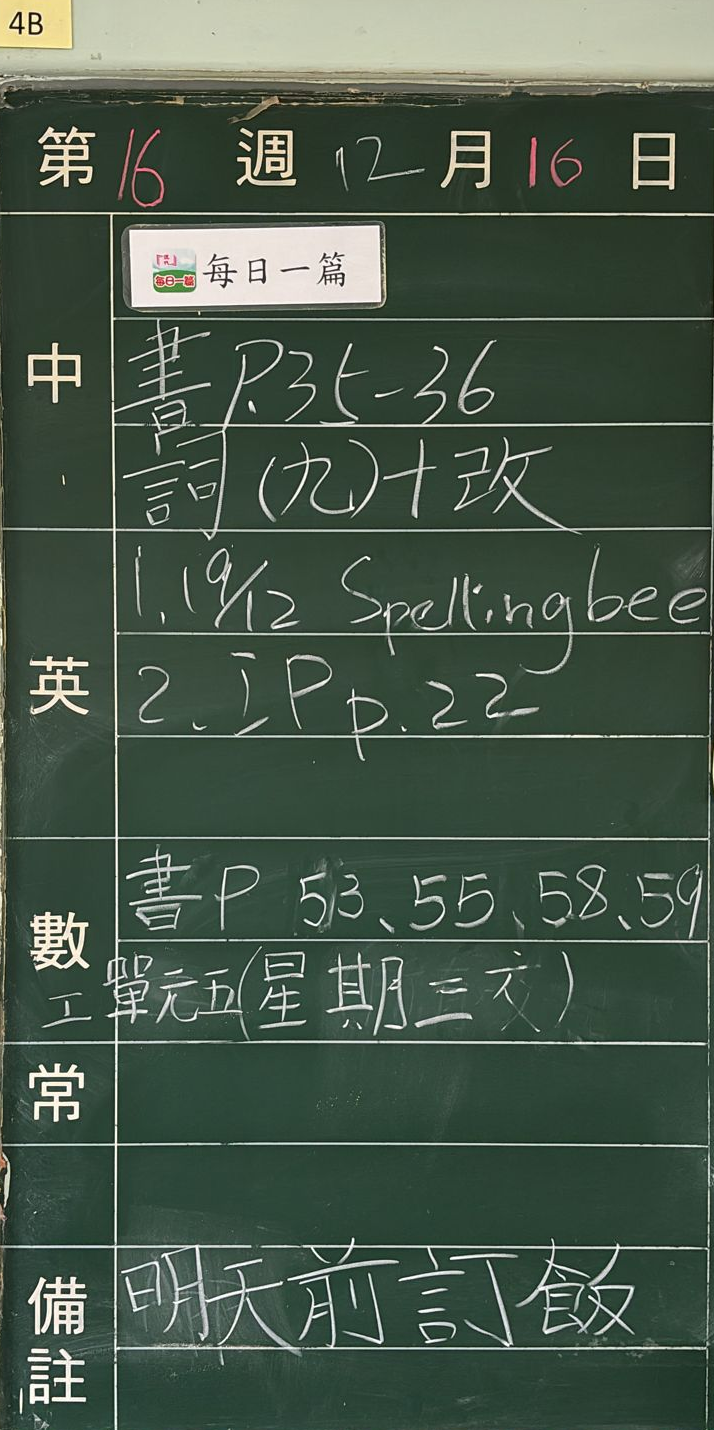 4B
第 16 週 12 月 16 日
每日一篇 每日一篇
中
書 P.35-36
詞(九)+改
英
1. 19/12 Spelling bee
2. IP p.22
數
書 P 53、55、58、59
工 單元五(星期三交)
常
備註
明天前訂飯